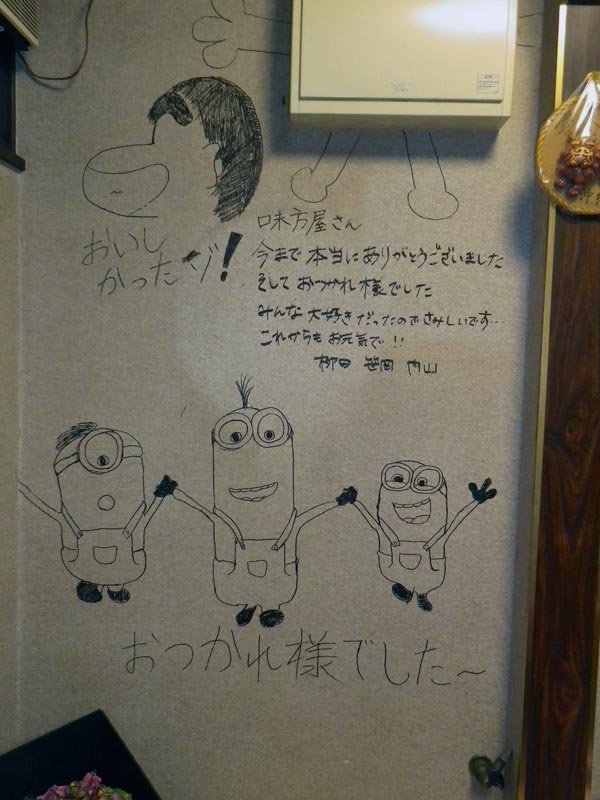 おいし
かったゾ!
味方屋さん
今まで本当にありがとうございました
そして おつかれ様でした
みんな大好きだったのでさみしいです…
これからもお元気で!!
柳田 笹岡 内山
おつかれ様でした～